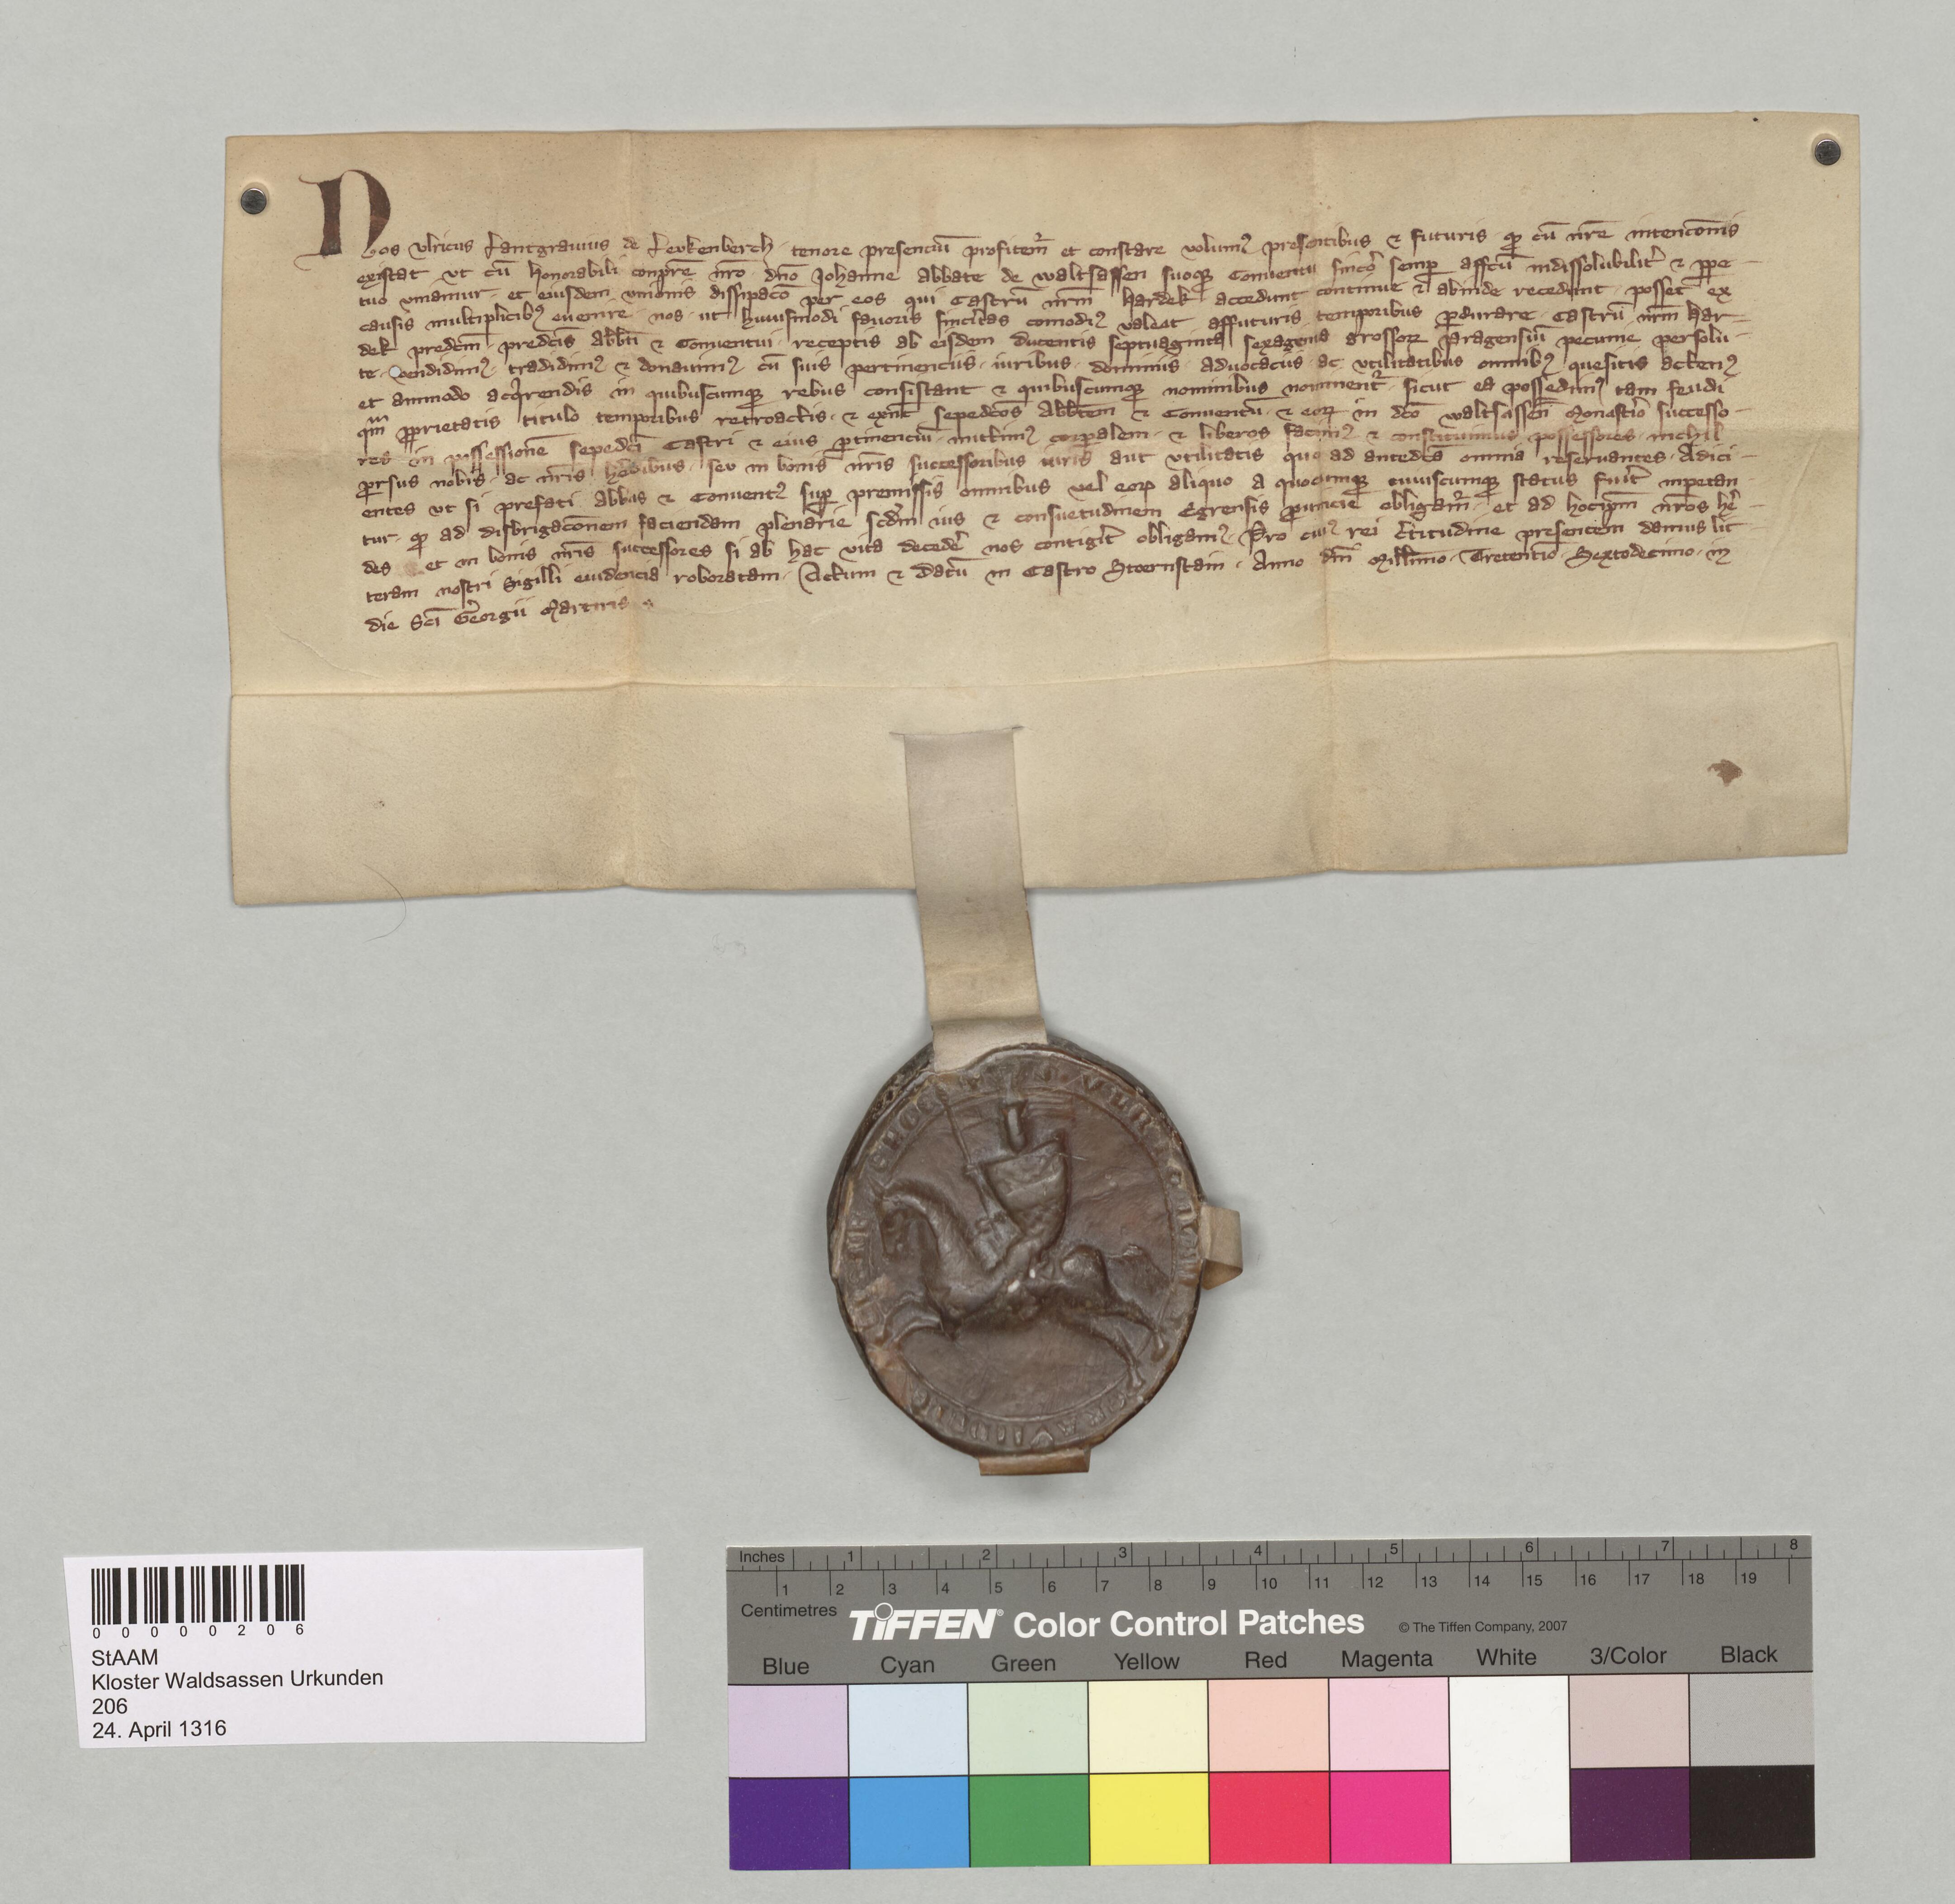 Nos Ulricus Lantgravius de Levkenberch tenore presenciū profitem̄ et constare volumꝰ presentibus ⁊ futuris qͦ cū nr̄e intencōnis
existat vt cū honorabili conpr̄e nr̄o dn̄o Johanne abbate de waltsassen suoqꝫ Conventu sincẏ semp affcū indissolubilit̄ ⁊ ppe-
tuo vniamur et eiusdem vnionis dissipacō per eos qui Castrū nr̄m hardek accedunt continue ⁊ abinde recedunt posset ex
causis multiplicibꝰ evenire nos ut huiusmodi favoris sinc̄itas comodiꝰ valeat affuturis temporibus pdurare Castrū nr̄m har-
dek predcm̄ predcīs abb̄ti ⁊ Conventui receptis ab eisdem ducentis septuaginta sexagenis grossorꝝ Pragensiū pecunie persolu-
te vendidimꝰ tradidimꝰ ⁊ donavimꝰ cū suis pertinenciis iuribus dominiis advocaciis ac vtilitatibus omnibꝰ quesitis actenꝰ
et ammodo acqͥrendis in quibuscumqꝫ rebus consistant ⁊ quibuscumqꝫ nominibus nominent̄ sicut ea possedimꝰ tam feudi
qm̄ pprietatis titulo temporibus retroactis ⁊ exnc̄ sepedcōs Abb̄tem ⁊ Conventū ⁊ eorꝝ in dc̄o waltsassen̄ Monast̄io successo-
res in possessionē sepedcī Castri ⁊ eius ptinenciū mittimꝰ corpalem ⁊ liberos facimꝰ ⁊ constituimus possessores nichil
prsus nobis ac nr̄is h̄edibus seu in bonis nr̄is successoribus iuris aut vtilitatis quo ad antedcā omnia reservantes Adici-
entes vt si prefati abbas ⁊ Conventꝰ sup premissis omnibus vel eorꝝ aliquo a quocumqꝫ cuiuscumqꝫ status fu̅it inpetan-
tur qͦ ad disbrigacōnem faciendam plenarie scdm̄ ius ⁊ consuetudinem Egrensis prouincie obligam̄ et ad hocipm̄ nr̄os h̄e-
des et in bonis nr̄is successores si ab hac vita deced̄e nos contiḡit obligamꝰ Pro cuiꝰ rei c̄titudine presentem damus lit-
teram nostri Sigilli euidencia roboratam Actum ⁊ Datū in Castro Stoernstain Anno dn̄i Mill̄imo Trecentīo Sextodecimo in
die Sc̄i Georgii Martiris
0 0 0 0 0 2 0 6
StAAM
Kloster Waldsassen Urkunden
206
24. April 1316
Inches 1 2 3 4 5 6 7 8
1 2 3 4 5 6 7 8 9 10 11 12 13 14 15 16 17 18 19
Centimetres
TIFFEN® Color Control Patches © The Tiffen Company, 2007
Blue Cyan Green Yellow Red Magenta White 3/Color Black